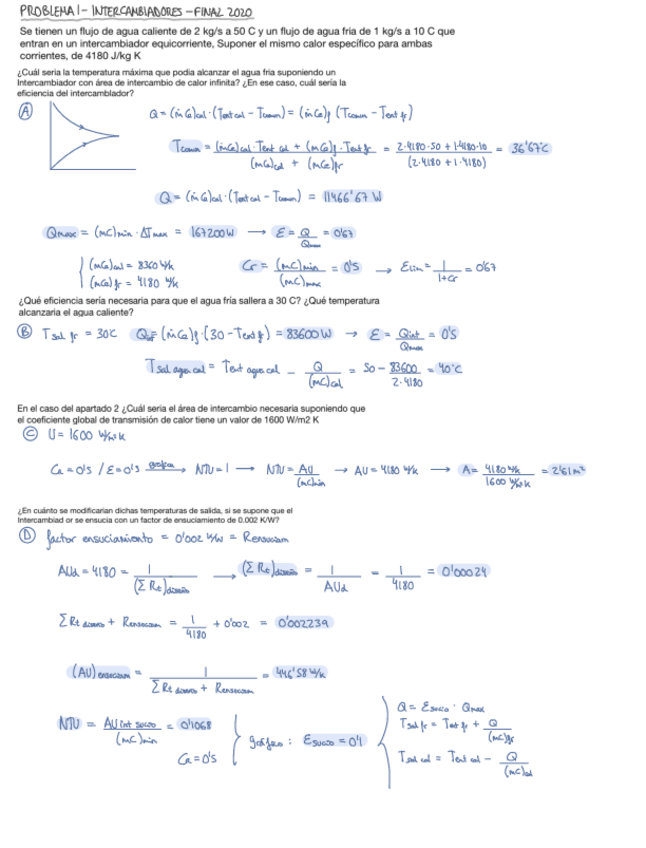 PROBLEMA 1 - INTERCAMBIADORES - FINAL 2020
Se tienen un flujo de agua caliente de 2 kg/s a 50 C y un flujo de agua fria de 1 kg/s a 10 C que
entran en un intercambiador equicorriente, Suponer el mismo calor específico para ambas
corrientes, de 4180 J/kg K
¿Cuál seria la temperatura máxima que podia alcanzar el agua fria suponiendo un
Intercambiador con área de intercambio de calor infinita? ¿En ese caso, cuál sería la
eficiencia del intercambiador?
A
Q = (ṁCe)cal · (Tent cal - Tcomun) = (ṁCe)f (Tcomun - Tent fr)
Tcomun = (ṁCe)cal · Tent cal + (ṁCe)f · Tent fr / (mCe)cal + (mCe)fr = 2·4180·50 + 1·4180·10 / (2·4180 + 1·4180) = 36'67°C
Q = (ṁCe)cal · (Tent cal - Tcomun) = 111466'67 W
Qmax = (mC)min · ΔTmax = 167200W → E = Q / Qmax = 0'67
(mCe)cal = 8360 W/k
(mCe)fr = 4180 W/k
Cr = (mC)min / (mC)max = 0'5 → Elim = 1 / 1+Cr = 0'67
¿Qué eficiencia sería necesaria para que el agua fría sallera a 30 C? ¿Qué temperatura
alcanzaria el agua caliente?
B Tsal fr = 30C Qint = (ṁCe)f · (30 - Tent fr) = 83600W → E = Qint / Qmax = 0'5
Tsal agua cal = Tent agua cal - Q / (mC)cal = 50 - 83600 / 2·4180 = 40°C
En el caso del apartado 2 ¿Cuál seria el área de intercambio necesaria suponiendo que
el coeficiente global de transmisión de calor tiene un valor de 1600 W/m2 K
C U = 1600 W/m²k
Ca = 0'5 / E = 0'5 grafica → NTU = 1 → NTU = AU / (mC)min → AU = 4180 W/k → A = 4180 W/k / 1600 W/m²k = 2'61 m²
¿En cuánto se modificarian dichas temperaturas de salida, si se supone que el
Intercambiad or se ensucia con un factor de ensuciamiento de 0.002 K/W?
D factor ensuciamiento = 0'002 k/W = Rensuciam
AUd = 4180 = 1 / (Σ Rt)diseño → (Σ Rt)diseño = 1 / AUd = 1 / 4180 = 0'00024
Σ Rt diseño + Rensuciam = 1 / 4180 + 0'002 = 0'002239
(AU)ensuciam = 1 / Σ Rt diseño + Rensuciam = 446'58 W/k
NTU = AU int sucio / (mC)min = 0'1068
Ca = 0'5
gráfica : Esucio = 0'1
Q = Esucio · Qmax
Tsal fr = Tent fr + Q / (mC)fr
Tsal cal = Tent cal - Q / (mC)cal